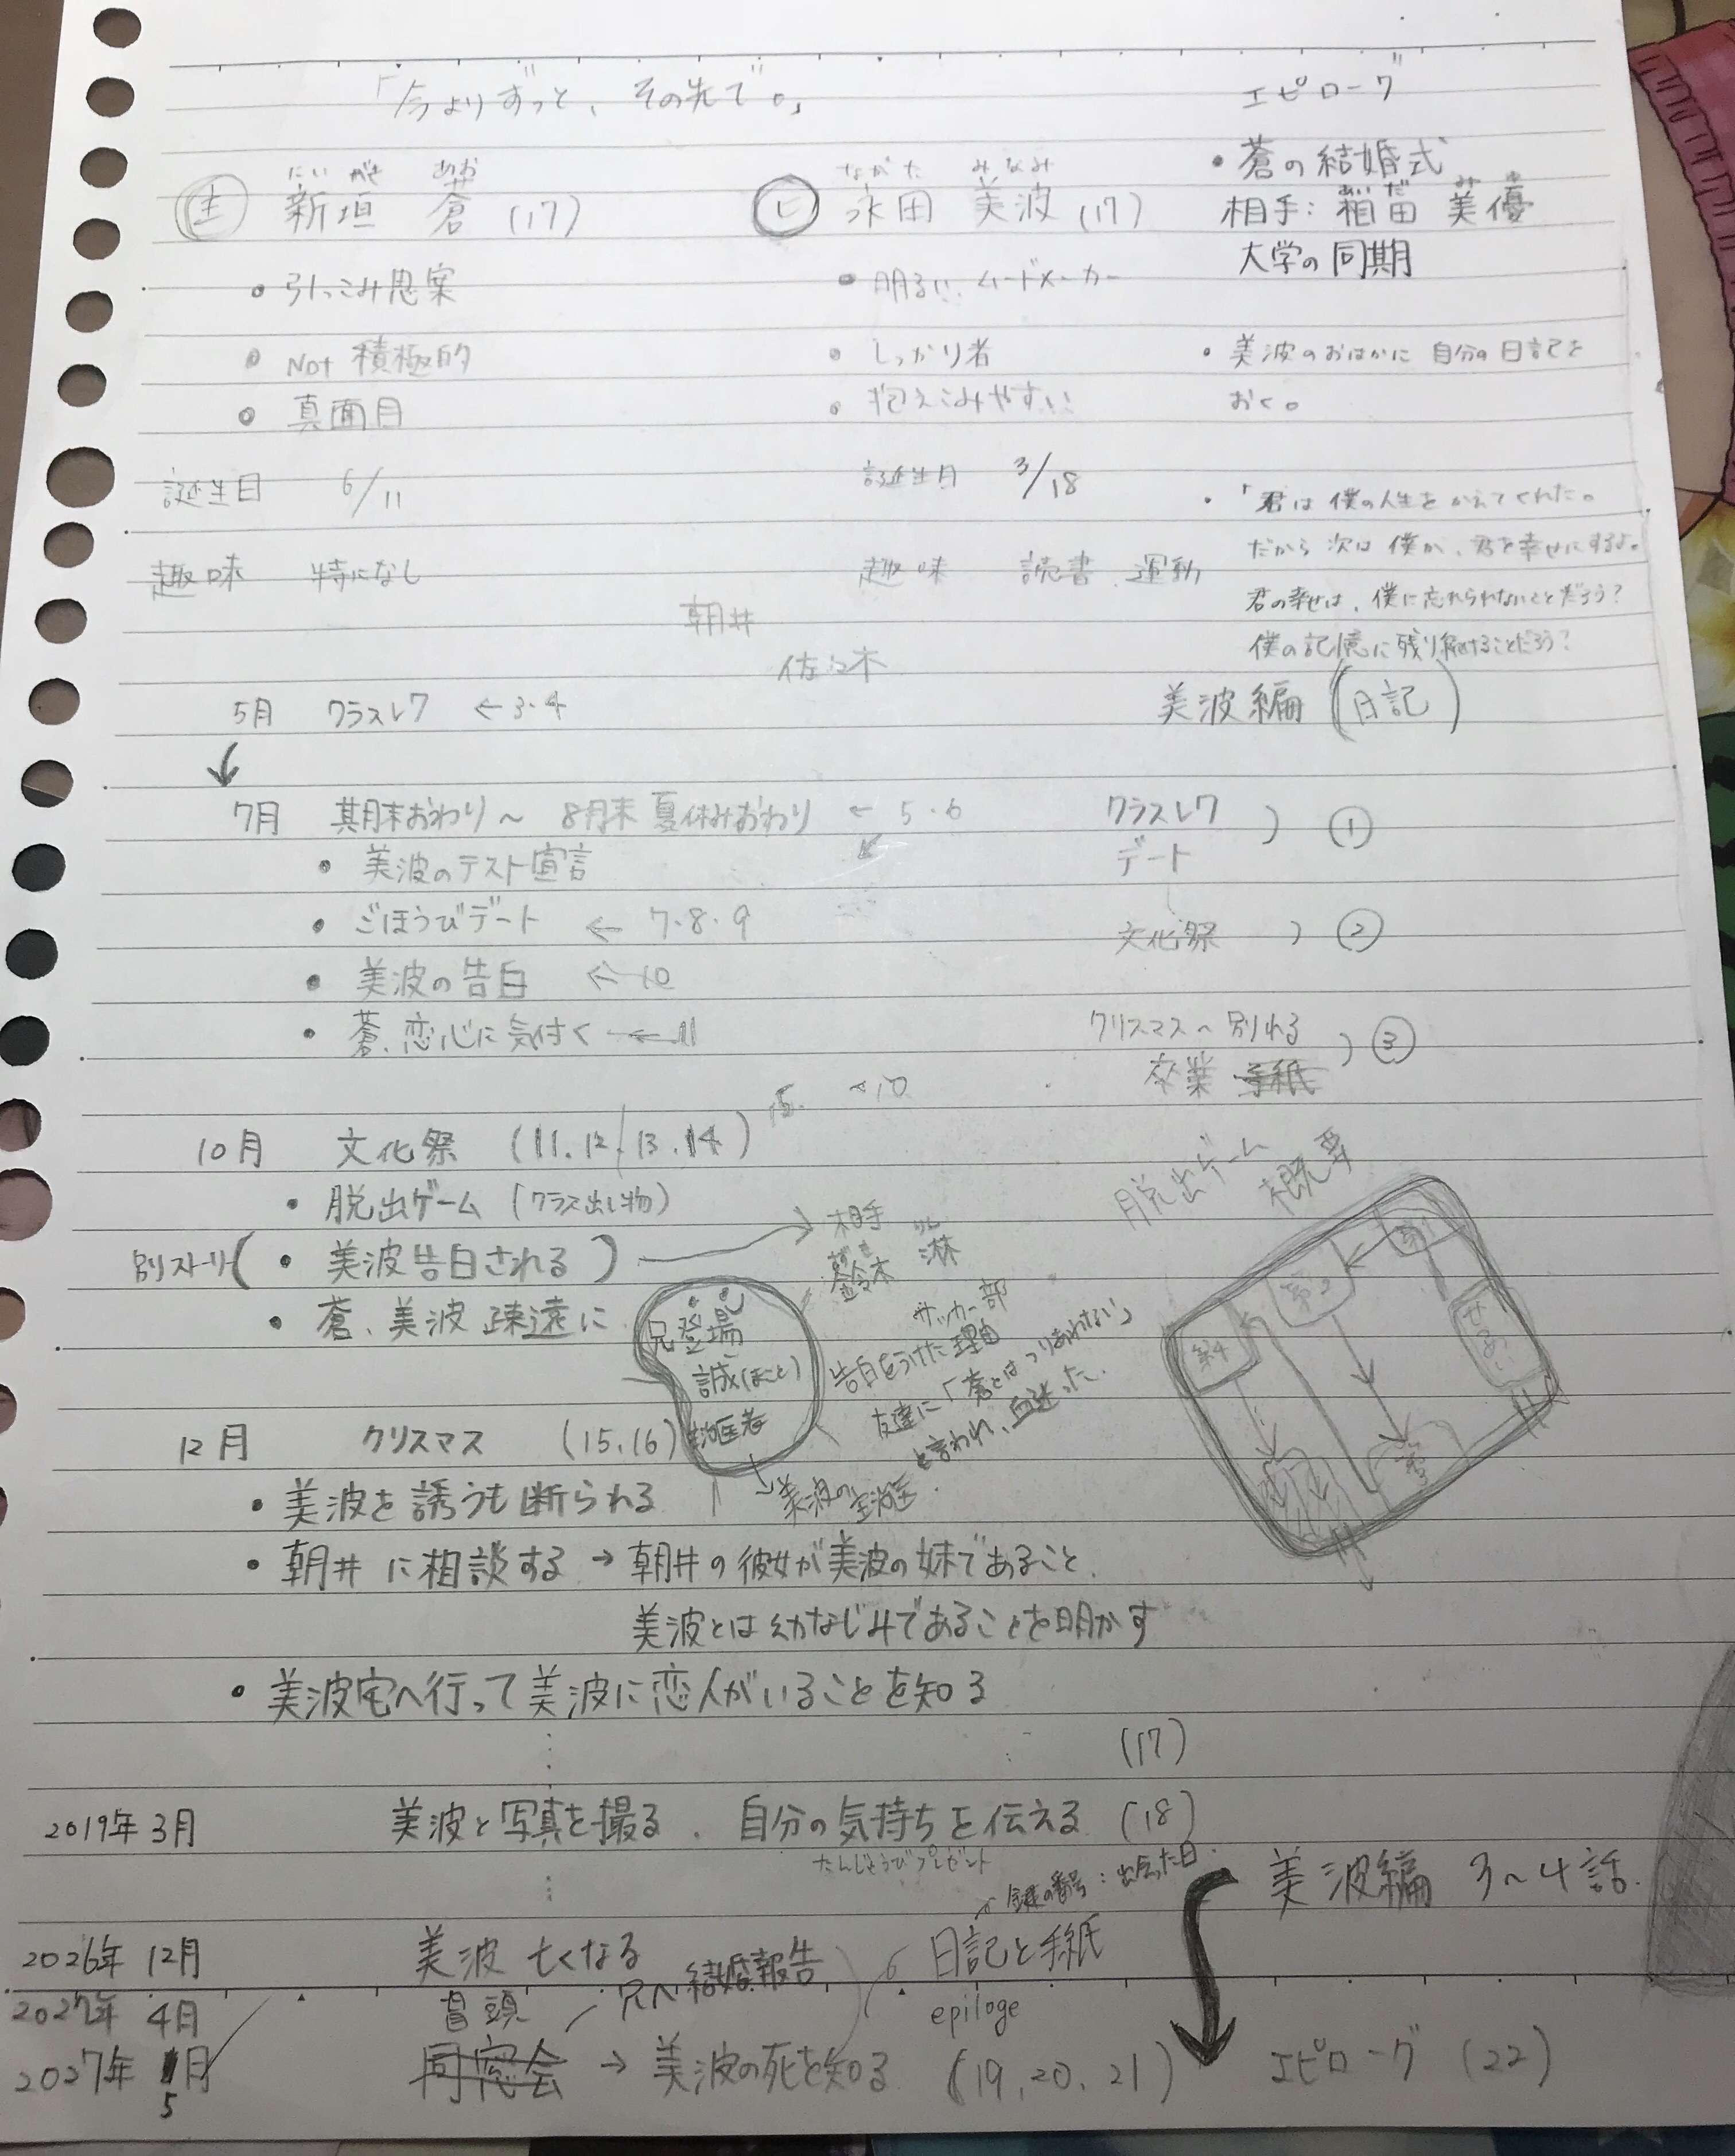 「今よりずっと、その先で。」
エピローグ
にいがき あお
㊤ 新垣 蒼 (17)
ながた みなみ
ヒ 永田 美波 (17)
・蒼の結婚式
相手: 稲田 美優
大学の同期
・引っこみ思案
・Not 積極的
・真面目
誕生日 6/11
趣味 特になし
・明るい、ムードメーカー
・しっかり者
・抱えこみやすい
誕生日 3/18
趣味 読書 運動
・美波のおはかに 自分の日記を
おく。
・「君は僕の人生をかえてくれた。
だから次は僕が、君を幸せにするよ。
君の幸せは、僕に忘れられないことだろう?
僕の記憶に残り続けることだろう?
朝井
佐々木
5月 クラスレク ←3・4
↓
7月 期末おわり〜8月末 夏休みおわり ← 5・6
・美波のテスト宣言
・ごほうびデート ← 7・8・9
・美波の告白 ←10
・蒼、恋心に気付く ←11
美波編(日記)
クラスレク
デート ) ①
文化祭 ) ②
クリスマス〜別れる
卒業 手紙 ) ③
10月 文化祭 (11.12.13.14)
・脱出ゲーム (クラス出し物)
別ストーリー(・美波告白される) →
・蒼、美波 疎遠に
相手
りん
鈴木 淋
サッカー部
告白をうけた理由
友達に「蒼とはつりあわない」
と言われ、血迷った。
兄登場
誠(まこと)
医者
↓美波の主治医
脱出ゲーム
概要
12月 クリスマス (15,16)
・美波を誘うも断られる
・朝井に相談する → 朝井の彼女が美波の妹であること、
美波とは幼なじみであることを明かす
・美波宅へ行って美波に恋人がいることを知る
(17)
2019年3月 美波と写真を撮る、自分の気持ちを伝える (18)
たんじょうびプレゼント
鍵の番号:出会った日
美波編 3〜4話
2026年12月 美波 亡くなる
日記と手紙
2027年4月 冒頭
兄へ結婚報告
epiloge
2027年 5月 同窓会 → 美波の死を知る (19,20,21)
エピローグ (22)